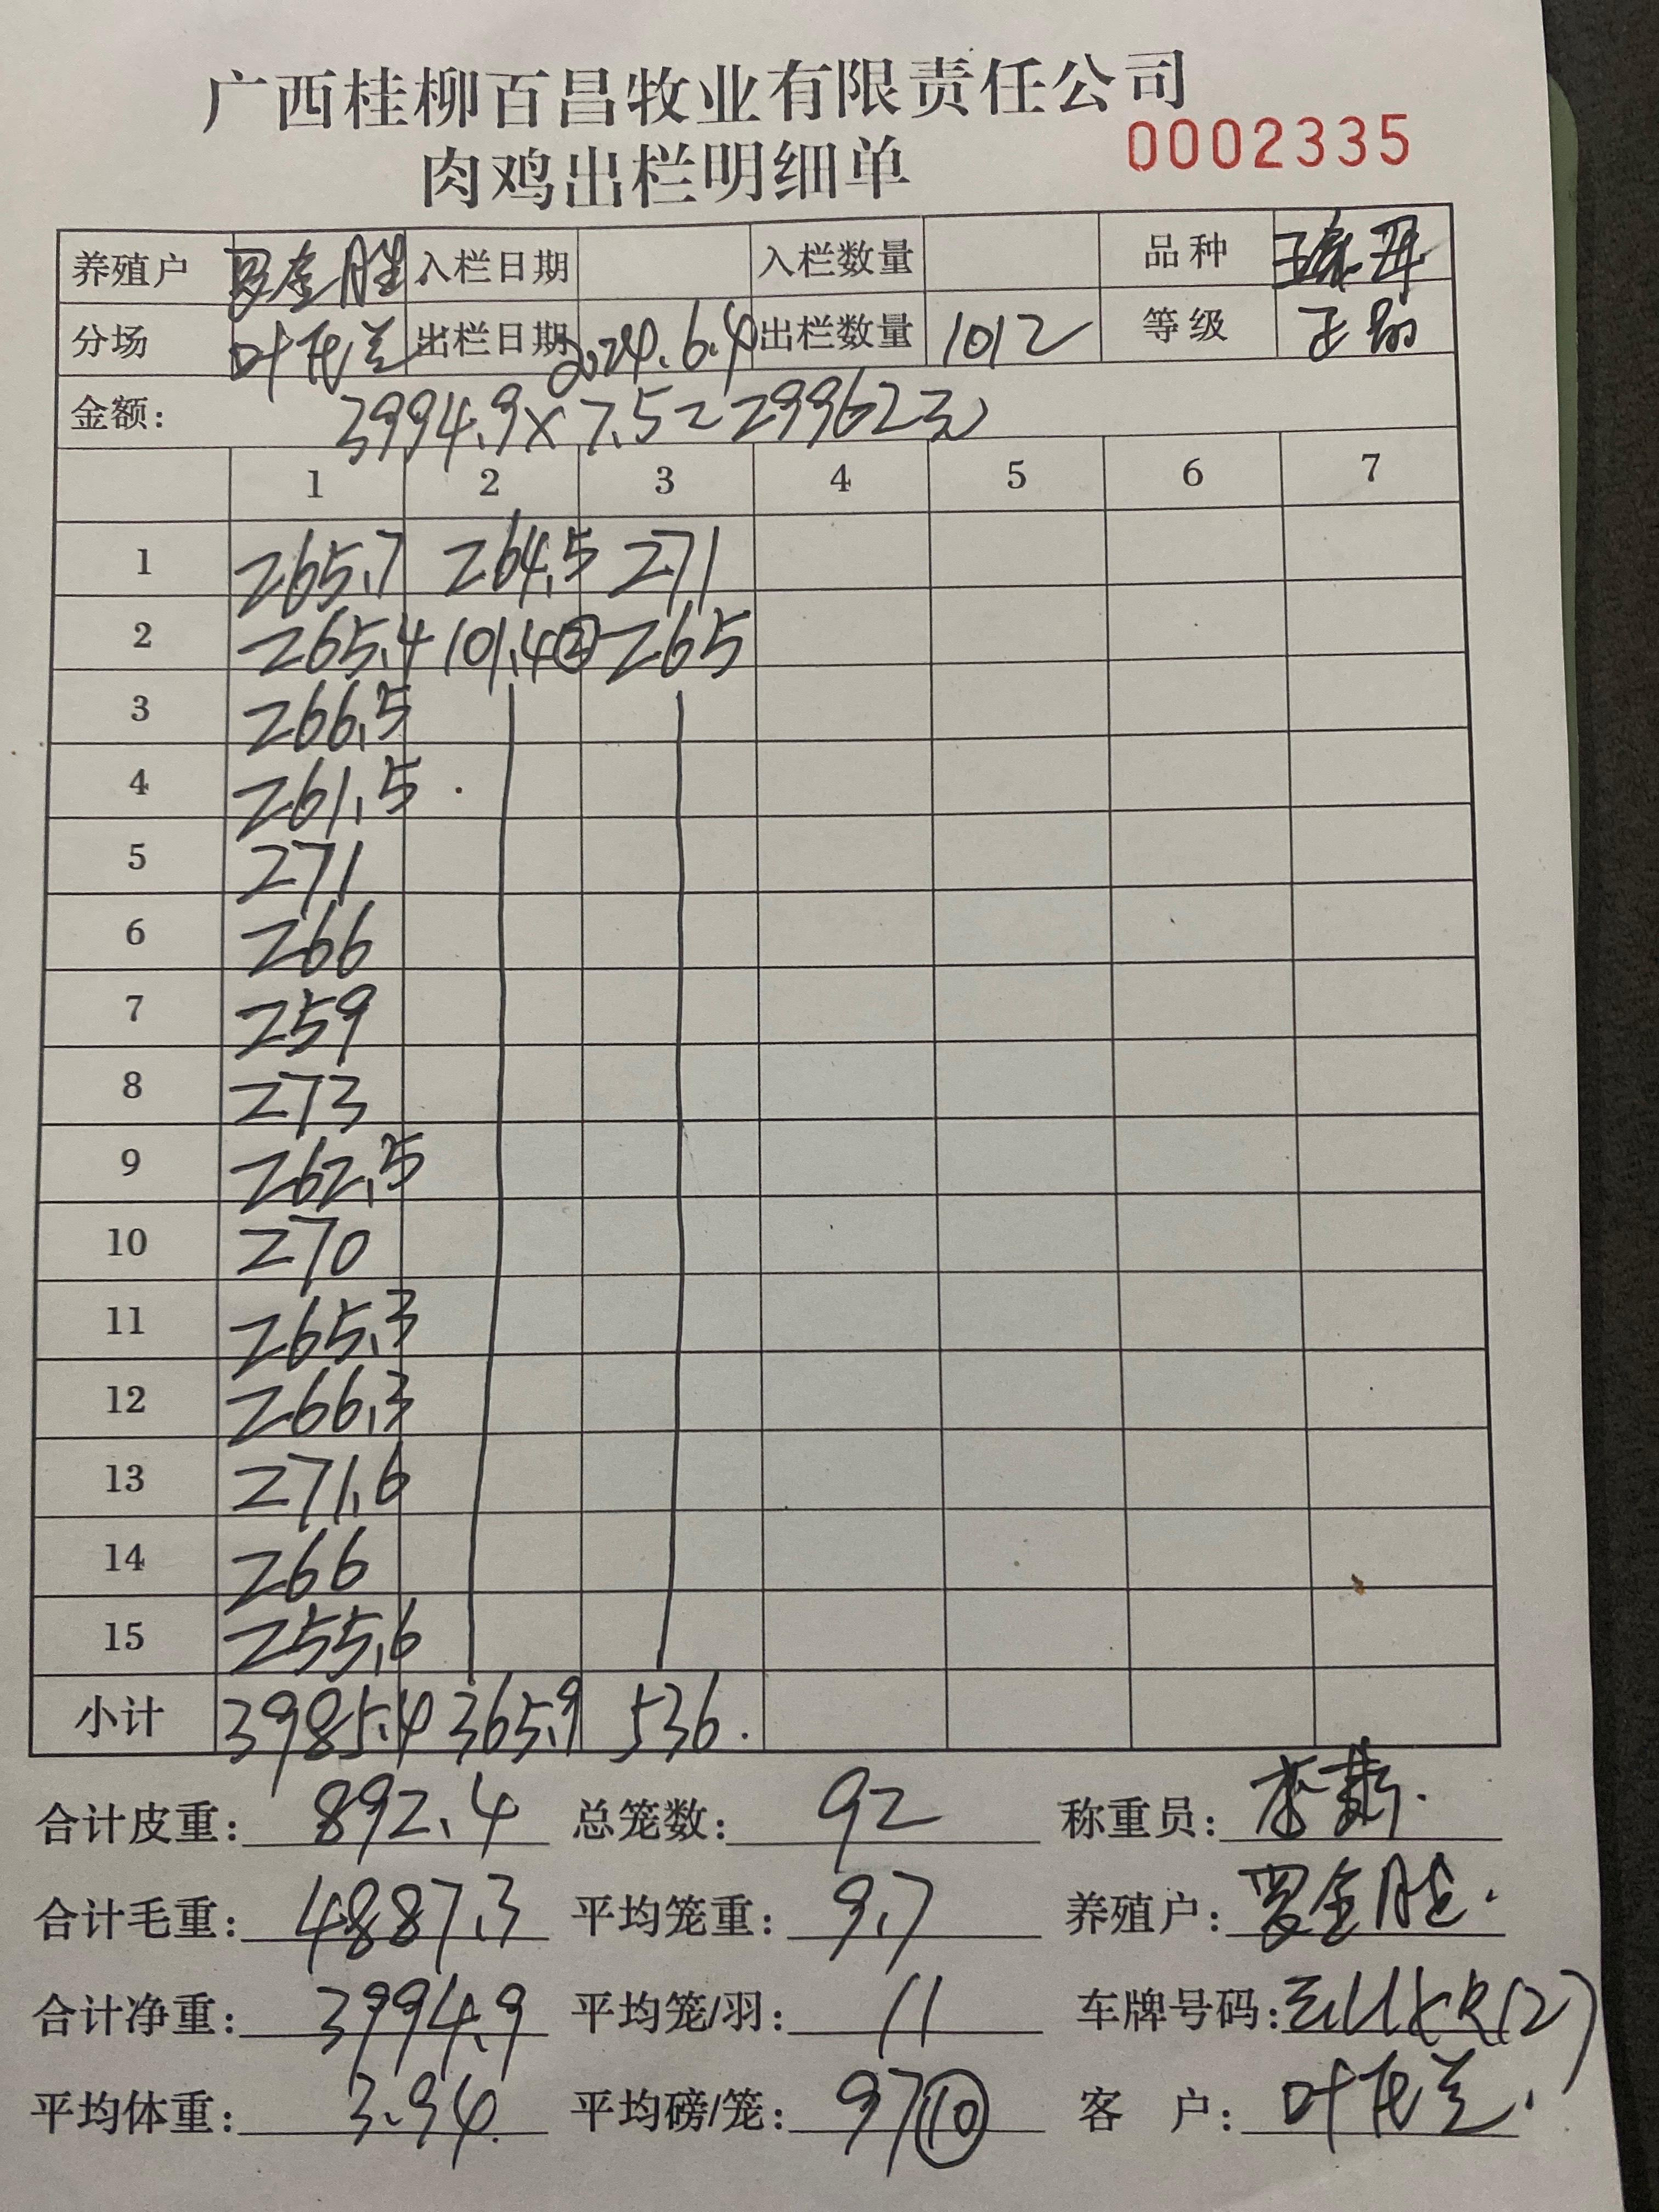 广西桂柳百昌牧业有限责任公司
肉鸡出栏明细单 0002335
养殖户 罗金胜 入栏日期 入栏数量 品种
分场 叶 出栏日期 2024.6.4 出栏数量 1012 等级 正
金额: 3994.9×7.5=29962元
1 2 3 4 5 6 7
1 265.7 264.5 271
2 265.4 101.4② 265
3 266.5
4 261.5
5 271
6 266
7 259
8 273
9 262.5
10 270
11 265.3
12 266.3
13 271.6
14 266
15 255.6
小计 3985.4 365.9 536.
合计皮重: 892.4 总笼数: 92 称重员: 李
合计毛重: 4887.3 平均笼重: 9.7 养殖户: 罗金胜.
合计净重: 3994.9 平均笼/羽: 11 车牌号码:
平均体重: 3.94 平均磅/笼: 97⑩ 客 户: 叶